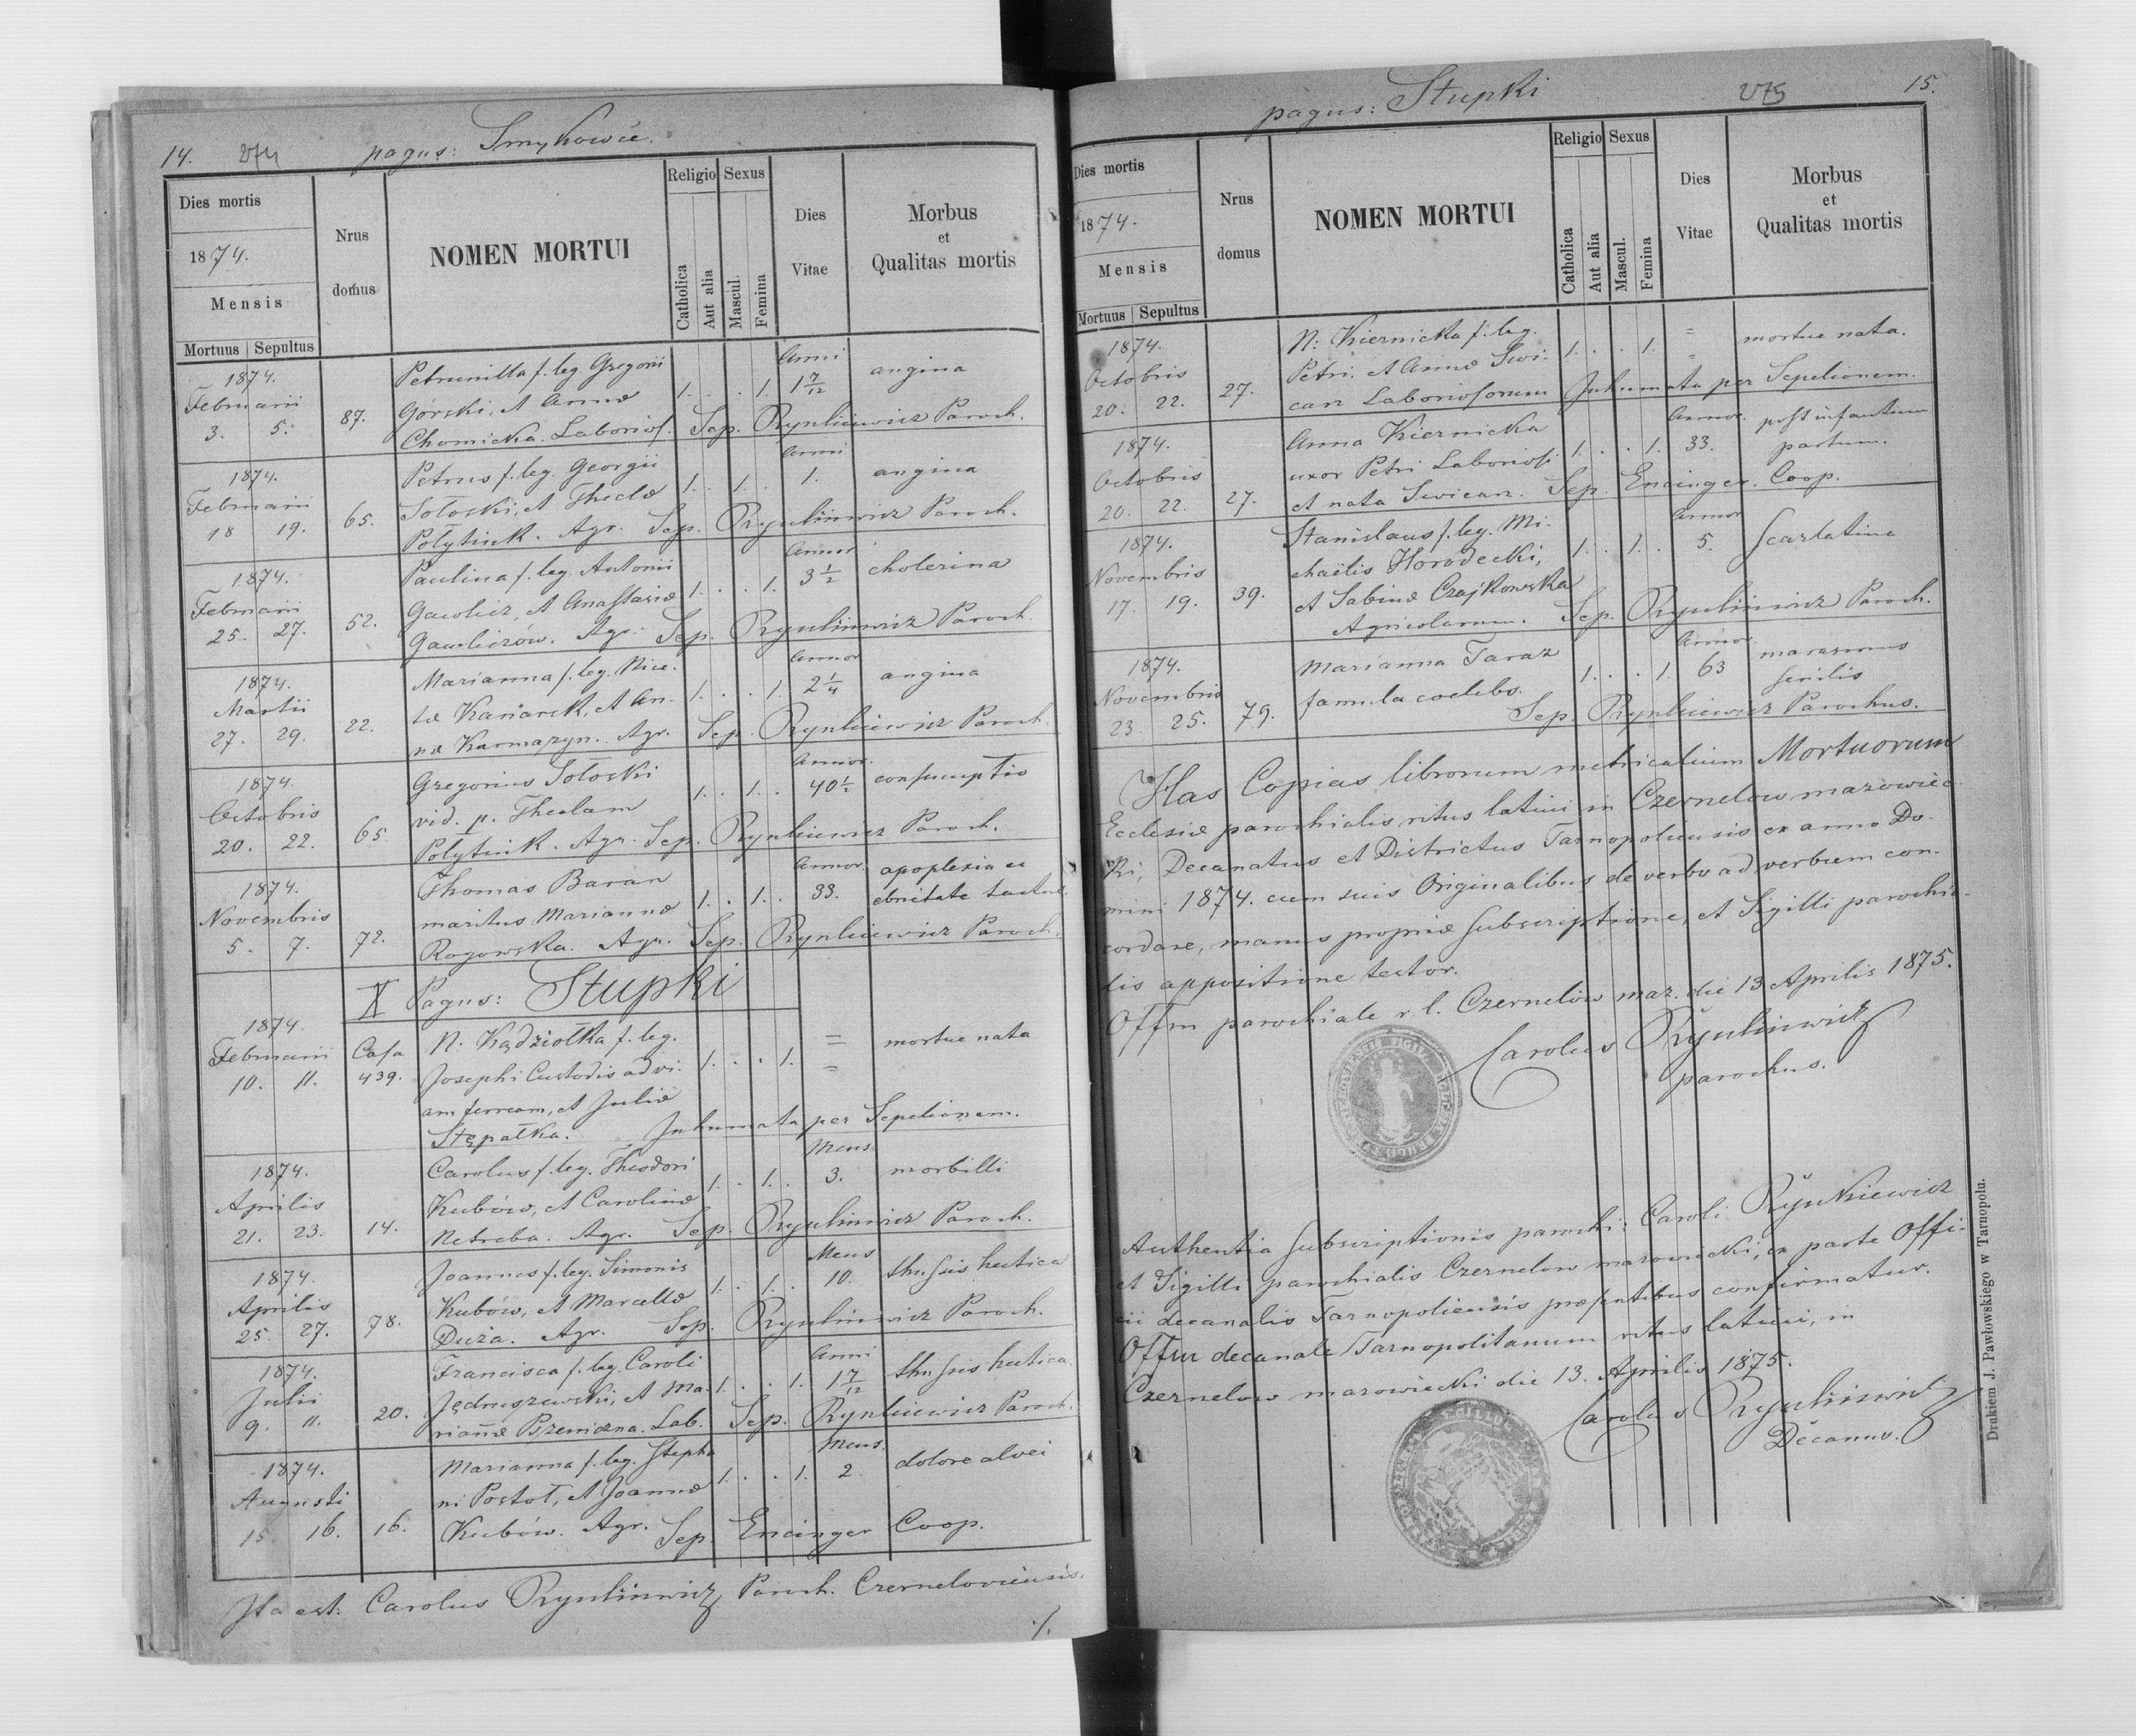 14. 274 pagus: Smykowce.
Dies mortis
1874.
Mensis
Mortuus Sepultus
Nrus
domus
NOMEN MORTUI
Religio Sexus
Catholica
Aut alia
Mascul.
Femina
Dies
Vitae
Morbus
et
Qualitas mortis
1874.
Februarii
3. 5. 87.
Petrunilla f. leg. Gregorii
Górski, et Annæ
Chomicka. Laborios. Sep. Rynkiewicz Paroch.
1. . . 1. Anni 1 7/12 angina
1874.
Februarii
18 19. 65.
Petrus f. leg. Georgii
Sołoski, et Theclæ
Połytiuk. Agr. Sep. Rynkiewicz Paroch.
1. . 1. . Anni 1. angina
1874.
Februarii
25. 27. 52.
Paulina f. leg. Antonii
Gawlicz, et Anastasiæ
Gawliczów. Agr. Sep. Rynkiewicz Paroch
1. . . 1. Annor 3 1/2 cholerina
1874.
Martii
27. 29. 22.
Marianna f. leg. Nice-
tæ Kaniarek, et An-
næ Karmazyn. Agr. Sep. Rynkiewicz Paroch.
1. . . 1. Annor 2 1/4 angina
1874.
Octobris
20. 22. 65.
Gregorius Sołoski
vid. p. Theclam
Połytiuk. Agr. Sep. Rynkiewicz Paroch.
1. . 1. . Annor. 40 1/2 consumptio
1874.
Novembris
5. 7. 72.
Thomas Baran
maritus Mariannæ
Rogowska. Agr. Sep. Rynkiewicz Paroch.
1. . 1. . Annor. 33. apoplexia ex
ebrietate tactus.
X Pagus: Stupki
1874.
Februarii
10. 11. Casa
439.
N: Kądziołka f. leg.
Josephi Custodis ad vi-
am ferream, et Juliæ
Stępałka. Inhumata per Sepelionem.
1. . . 1. = mortue nata
1874.
Aprilis
21. 23. 14.
Carolus f. leg. Theodori
Kubów, et Carolinæ
Netreba. Agr. Sep. Rynkiewicz Paroch.
1. . 1. . Mens 3. morbilli
1874.
Aprilis
25. 27. 78.
Joannes f. leg. Simonis
Kubów, et Marcellæ
Duża. Agr. Sep. Rynkiewicz Paroch.
1. . 1. . Mens 10. thussis hectica
1874.
Julii
9. 11. 20.
Francisca f. leg. Caroli
Jędruszewski, et Ma-
riannæ Pszeniczna. Lab. Sep. Rynkiewicz Paroch.
1. . . 1. Anni 1 7/12 thussis hectica.
1874.
Augusti
15. 16. 16.
Marianna f. leg. Stepha
ni Postoł, et Joannæ
Kubów. Agr. Sep Encinger Coop.
1. . . 1. Mens. 2. dolore alvei
Ita est: Carolus Rynkiewicz, Paroch. Czerneloviensis.
./.
pagus: Stupki 275 15.
Dies mortis
1874.
Mensis
Mortuus Sepultus
Nrus
domus
NOMEN MORTUI
Religio Sexus
Catholica
Aut alia
Mascul.
Femina
Dies
Vitae
Morbus
et
Qualitas mortis
1874.
Octobris
20. 22. 27.
N: Kiernicka f. leg.
Petri et Annæ Swi-
can Laboriosorum Inhumata per Sepelionem.
1. . . 1. = mortue nata.
1874.
Octobris
20. 22. 27.
Anna Kiernicka
uxor Petri Laboriosi
et nata Swican. Sep. Encinger. Coop.
1. . . 1. Annor. 33. post infantum
partum.
1874.
Novembris
17. 19. 39.
Stanislaus f. leg. Mi-
chaëlis Horodecki,
et Sabinæ Czajkowska
Agricolarum. Sep. Rynkiewicz Paroch.
1. . 1. . Annor 5. Scarlatina
1874.
Novembris
23. 25. 79.
Marianna Taraz
famula coelebs.
Sep. Rynkiewicz Parochus.
1. . . 1. Annor. 63 marasmus
senilis
Has Copias librorum metricalium Mortuorum
Ecclesiæ parochialis ritus latini in Czernelow mazowiec-
ki, Decanatus et Districtus Tarnopoliensis ex anno Do-
mini 1874. cum suis Originalibus de verbo ad verbum con-
cordare, manus propriæ subscriptione, et Sigilli parochia-
lis appositione testor.
Offm parochiale r. l. Czernelów maz. die 13 Aprilis 1875.
Carolus Rynkiewicz
parochus.
Authentia subscriptionis parochi: Caroli Rynkiewicz
et Sigilli parochialis Czernelow mazowiecki, ex parte Offi-
cii decanalis Tarnopoliensis præsentibus confirmatur.
Offm decanale Tarnopolitanum ritus latini, in
Czernelow mazowiecki die 13. Aprilis 1875.
Carolus Rynkiewicz
Decanus.
Drukiem J. Pawłowskiego w Tarnopolu.